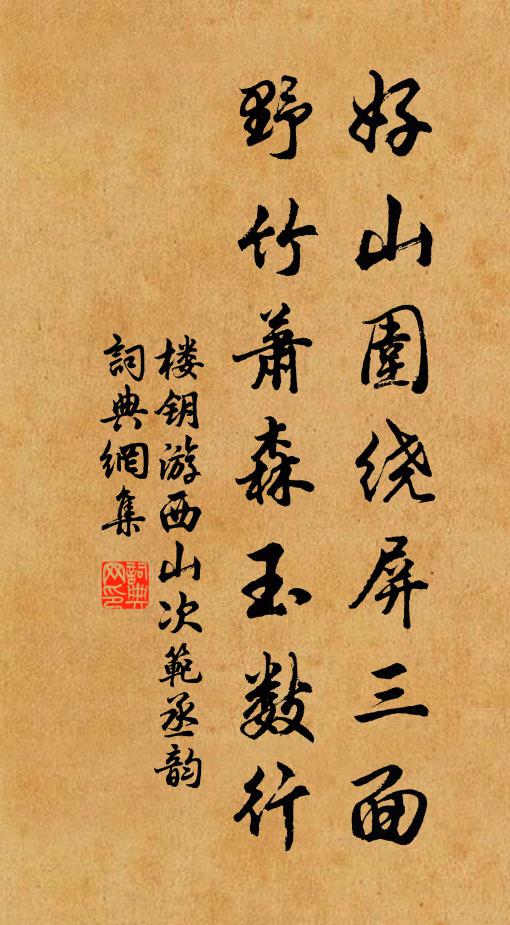 好山圍绕屏三面
野竹萧森玉数行
楼钥游西山次範丞韵
詞典網集
詞典网印